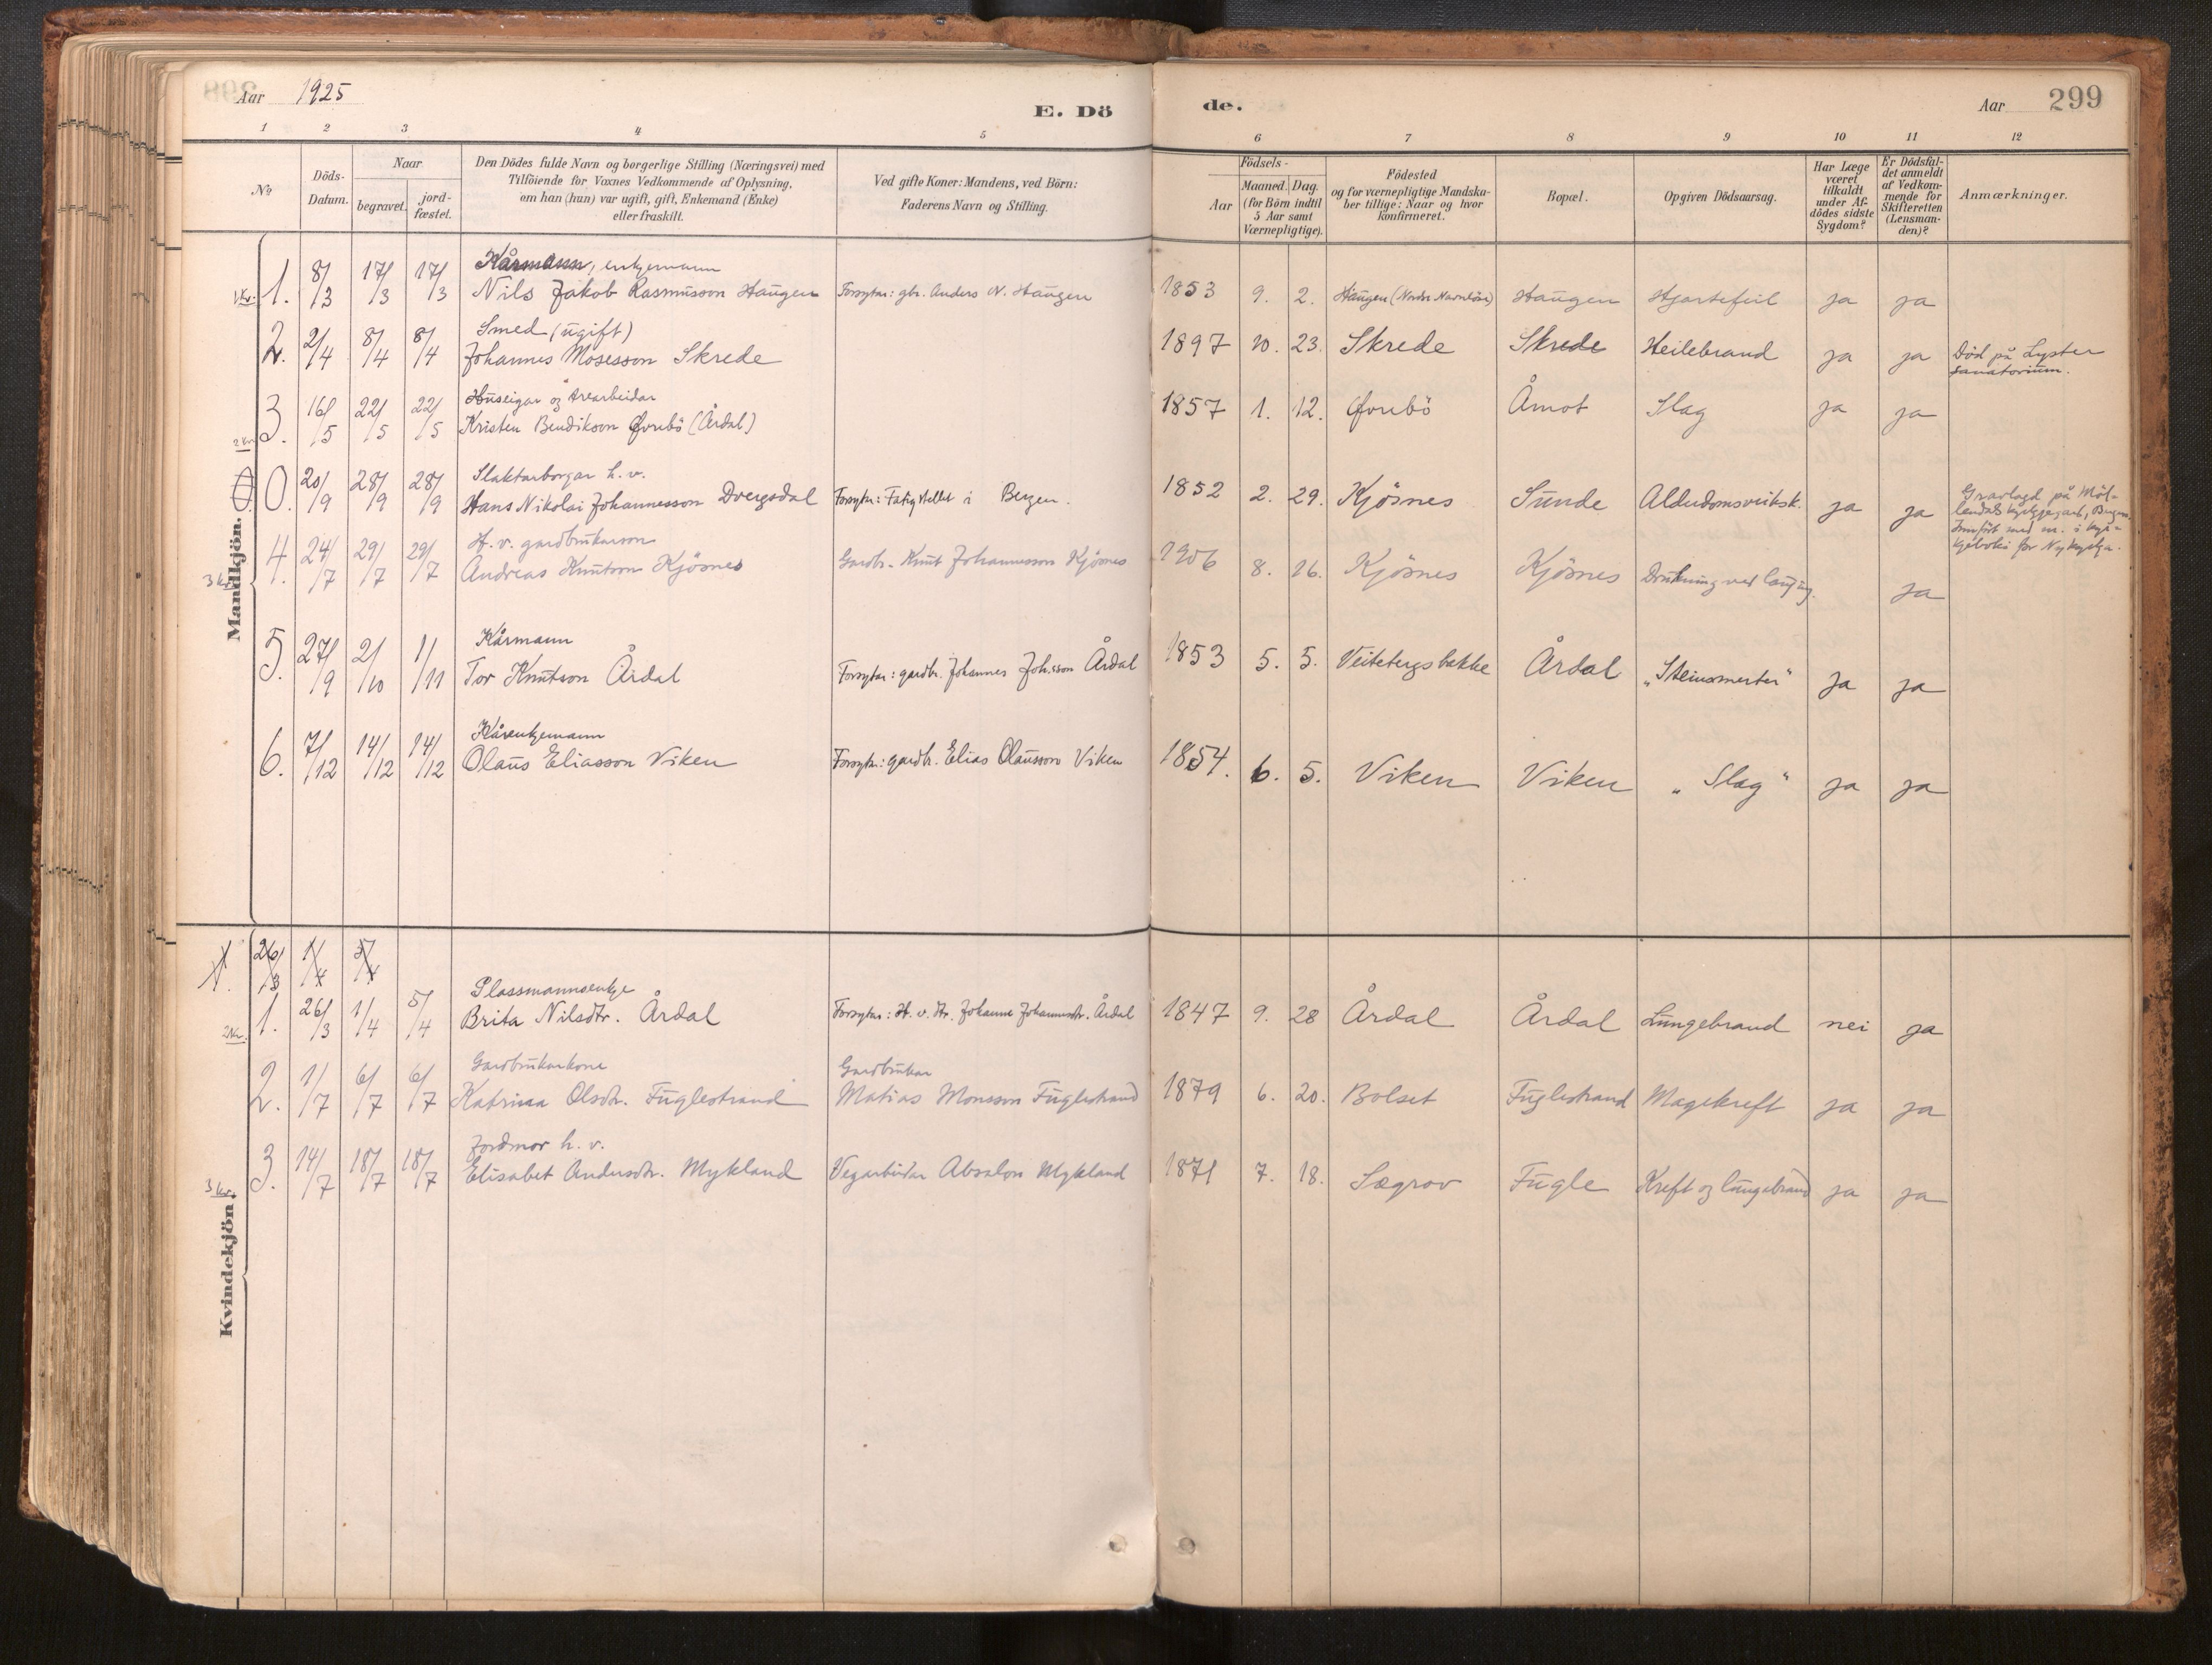 Aar 1925
E. Dö
de.
Aar 299
1 2 3 4 5
6 7 8 9 10 11 12
No
Döds-Datum.
Naar
begravet.
jord-fæstet.
Den Dödes fulde Navn og borgerlige Stilling (Næringsvei) med
Tilföiende for Voxnes Vedkommende af Oplysning,
om han (hun) var ugift, gift, Enkemand (Enke)
eller fraskilt.
Ved gifte Koner: Mandens, ved Börn:
Faderens Navn og Stilling.
Födsels-
Aar
Maaned. Dag.
(for Börn indtil
5 Aar samt
Værnepligtige).
Födested
og for værnepligtige Mandska-
ber tillige: Naar og hvor
Konfirmeret.
Bopæl.
Opgiven Dödsaarsag.
Har Læge
været
tilkaldt
under Af-
dödes sidste
Sygdom?
Er Dödsfal-
det anmeldt
af Vedkom-
mende for
Skifteretten
(Lensman-
den)?
Anmærkninger.
Mandkjön.
Kårmann, enkjemann
1. 8/3 17/3 17/3 Nils Jakob Rasmusson Haugen Forsytar: gbr. Anders N. Haugen 1853 9. 2. Haugen Haugen Hjartefeil ja ja
Smed (ugift)
2. 2/4 8/4 8/4 Johannes Mosesson Skrede 1897 10. 23. Skrede Skrede Heilebrand ja ja Död på Lyster
sanatorium.
Huseigar og trearbeidar
3. 16/5 22/5 22/5 Kristen Bendikson Øvrebö (Årdal) 1857 1. 12. Øvrebö Åmot Slag ja ja
2 kr.
Slaktarborgar h. v.
0. 20/9 28/9 28/9 Hans Nikolai Johannesson Dvergsdal Forsytar: Fatigstellet i Bergen. 1852 2. 29. Kjösnes Sunde Alderdomsveiksk. ja ja Gravlagd på Möl-
lendals kyrkjegard, Bergen.
Innfört med nr. i kyr-
kjeboki for Nykyrkja.
H. v. gardbrukarson
4. 24/7 29/7 29/7 Andreas Knutson Kjösnes Gardbr. Knut Johannesson Kjösnes 1906 8. 16. Kjösnes Kjösnes Drukning ved lauging. ja
3 kr.
Kårmann
5. 27/9 2/10 1/11 Tor Knutson Årdal Forsytar: gardbr. Johannes Joh.sson Årdal 1853 5. 5. Veitebergsbakke Årdal "Steinsmerter" ja ja
Kårenkjemann
6. 7/12 14/12 14/12 Olaus Eliasson Viken Forsytar: gardbr. Elias Olausson Viken 1854. 6. 5. Viken Viken "Slag" ja ja
Kvindekjön.
1. 26/3 1/4 5/4
Plassmannsenkje
1. 26/3 1/4 5/4 Brita Nilsdtr. Årdal Forsytar: H. v. dtr. Johanne Johannesdtr. Årdal 1847 9. 28 Årdal Årdal Lungebrand nei ja
2 kr.
Gardbrukarkone Gardbrukar
2. 1/7 6/7 6/7 Katrina Olsdtr. Fuglestrand Matias Monsson Fuglestrand 1879 6. 20. Bolset Fuglestrand Magekreft ja ja
Jordmor h. v.
3. 14/7 18/7 18/7 Elisabet Andersdtr. Mykland Vegarbeidar Absalon Mykland 1871 7. 18. Sægrov Fugle Kreft og lungebrand ja ja
3 kr.